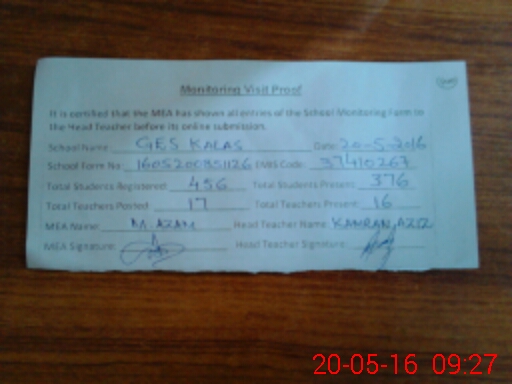 Monitoring Visit Proof
It is certified that the MEA has shown all entries of the School Monitoring Form to
the Head Teacher before its online submission.
School Name: GES KALAS Date: 20-5-2016
School Form No: EMIS Code: 37410267
Total Students Registered: 456 Total Students Present: 376
Total Teachers Posted: 17 Total Teachers Present: 16
MEA Name: M. AZAM Head Teacher Name: KAMRAN AZIZ
MEA Signature: Head Teacher Signature:
20-05-16 09:27